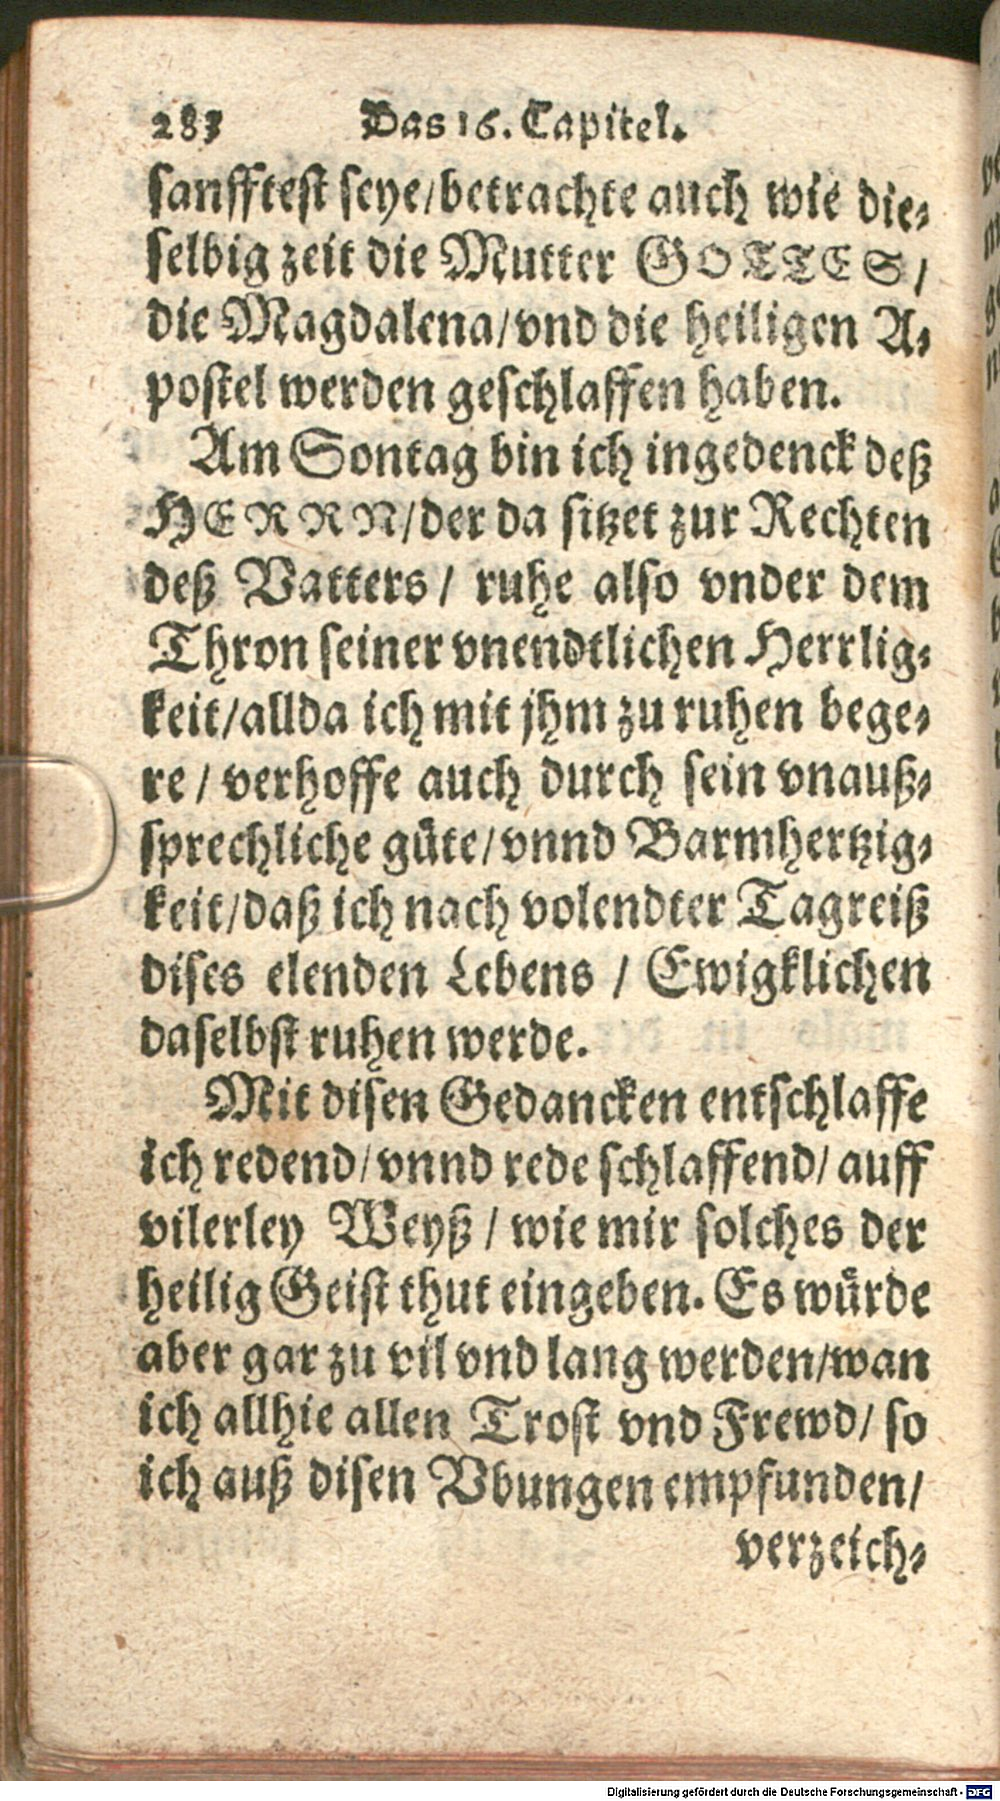 283 Das 16. Capitel.
sanfftest seye/betrachte auch wie die-
selbig zeit die Mutter GOTTES/
die Magdalena/vnd die heiligen A-
postel werden geschlaffen haben.
Am Sontag bin ich ingedenck deß
HERRN/der da sitzet zur Rechten
deß Vatters/ ruhe also vnder dem
Thron seiner vnendtlichen Herrlig-
keit/allda ich mit jhm zu ruhen bege-
re/ verhoffe auch durch sein vnauß-
sprechliche güte/vnnd Barmhertzig-
keit/daß ich nach volendter Tagreiß
dises elenden Lebens / Ewigklichen
daselbst ruhen werde.
Mit disen Gedancken entschlaffe
ich redend/vnnd rede schlaffend/auff
vilerley Weyß / wie mir solches der
heilig Geist thut eingeben. Es würde
aber gar zu vil vnd lang werden/wan
ich allhie allen Trost vnd Frewd/ so
ich auß disen Vbungen empfunden/
verzeich-
Digitalisierung gefördert durch die Deutsche Forschungsgemeinschaft - DFG